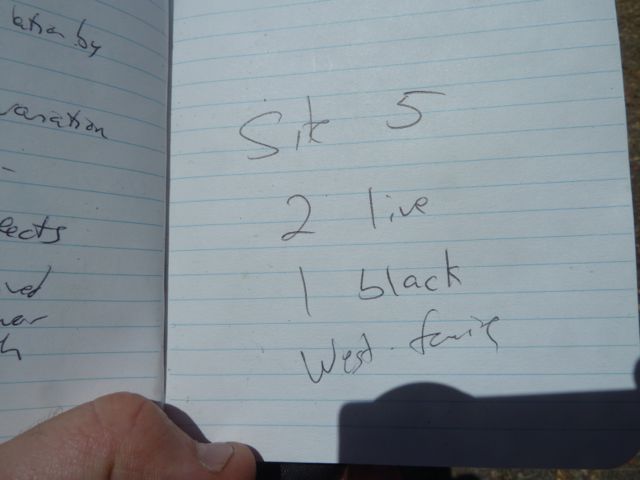 lation by
variation
-
ects
ved
Site 5
2 live
1 black
West-facing